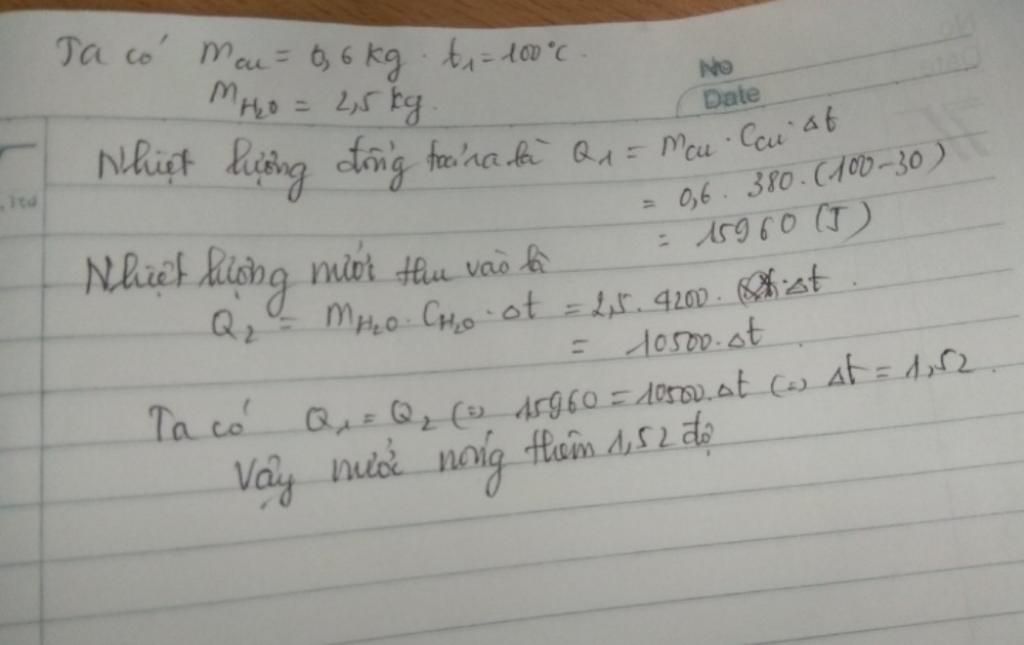 Ta có m_Cu = 0,6 kg . t₁ = 100°C .
m_H₂O = 2,5 kg .
No
Date
Nhiệt lượng đồng toả ra là Q₁ = m_Cu . C_Cu . Δt
= 0,6 . 380 . (100 - 30)
= 15960 (J)
Nhiệt lượng nước thu vào là
Q₂ = m_H₂O . C_H₂O . Δt = 2,5 . 4200 . Δt .
= 10500 . Δt .
Ta có Q₁ = Q₂ (=) 15960 = 10500 . Δt (=) Δt = 1,52 .
Vậy nước nóng thêm 1,52 độ